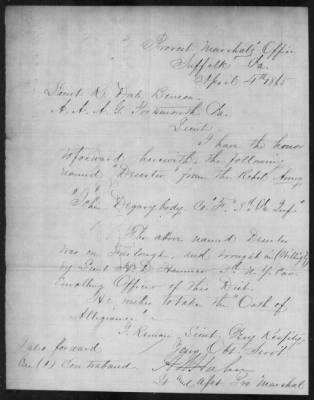 Provost Marshal's Office
Suffolk Va.
April 4th 1865
Lieut R. Dale Benson
A. A. A. G. Portsmouth, Va.
Lieut.
I have the honor
to forward herewith, the following
named "Deserter" from the Rebel Army
"John" Co "F"
The above named Deserter
was on Furlough, and brought in (Willingly)
by Lieut N. Y. Cav
Enrolling Officer of this Dist.
He wishes to take the "Oath of
Allegiance"
I Remain, Lieut, Very Respctfy
Your Obt. Servt
I also forward
One (1) Contraband.
Lt and Asst Pro Marshal